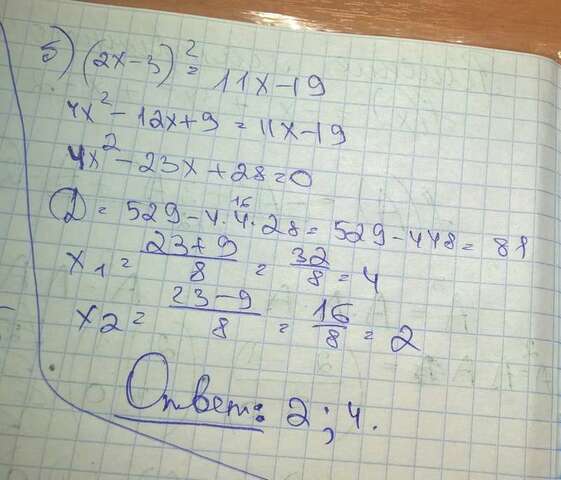 5) (2x-3)² = 11x-19
4x² - 12x+9 = 11x-19
4x² - 23x + 28 = 0
D = 529 - 4·4·28 = 529 - 448 = 81
16
x₁ = 23+9/8 = 32/8 = 4
x₂ = 23-9/8 = 16/8 = 2
Ответ: 2; 4.